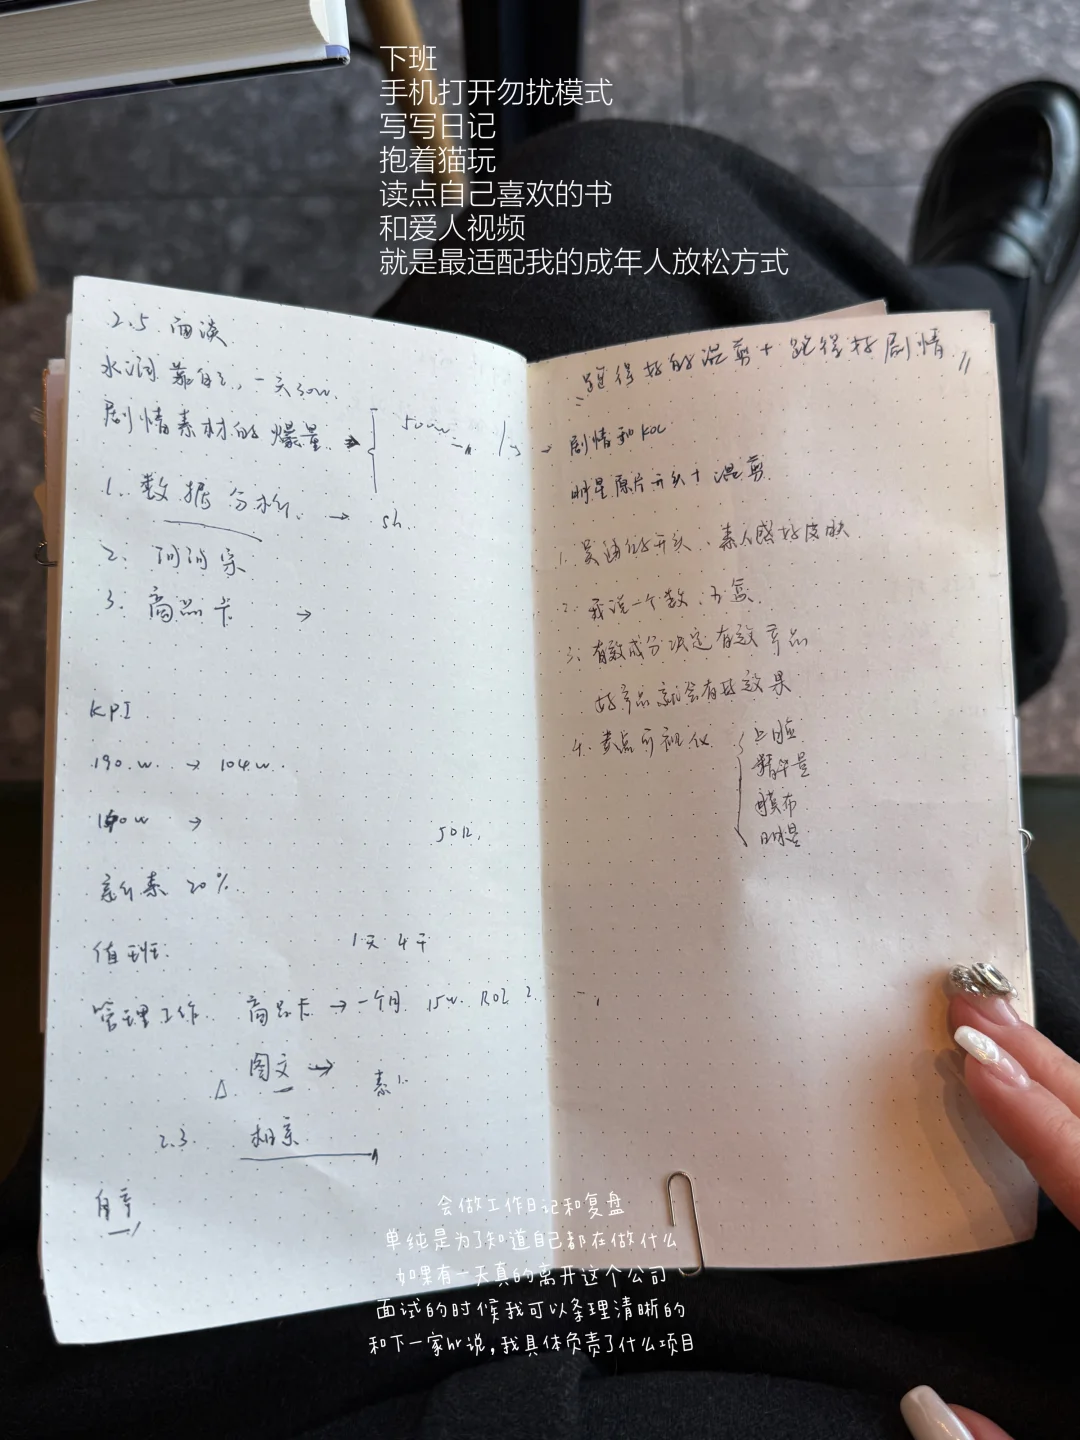 下班
手机打开勿扰模式
写写日记
抱着猫玩
读点自己喜欢的书
和爱人视频
就是最适配我的成年人放松方式
2.5 面谈
水润 靠的 一天30w.
剧情素材的爆量 → 50w
1. 数据分析 → 5h.
2.
3. 商品卡 →
KPI
190.w. → 104.w.
→
50%
20%
值班 1天 4千
管理工作 商品卡 → 一个月 15w. ROI 2.
图文 →
2.3.
"跑得好的混剪+跑得好剧情"
剧情和KOL
明星原片开头+混剪
1. 的开头、素人感好皮肤
2. 我说一个数、
3. 有效成分决定有效产品
好产品就会有好效果
4. 卖点可视化 上脸
精华量
膜布
明星
会做工作日记和复盘
单纯是为了知道自己都在做什么
如果有一天真的离开这个公司
面试的时候我可以条理清晰的
和下一家hr说,我具体负责了什么项目